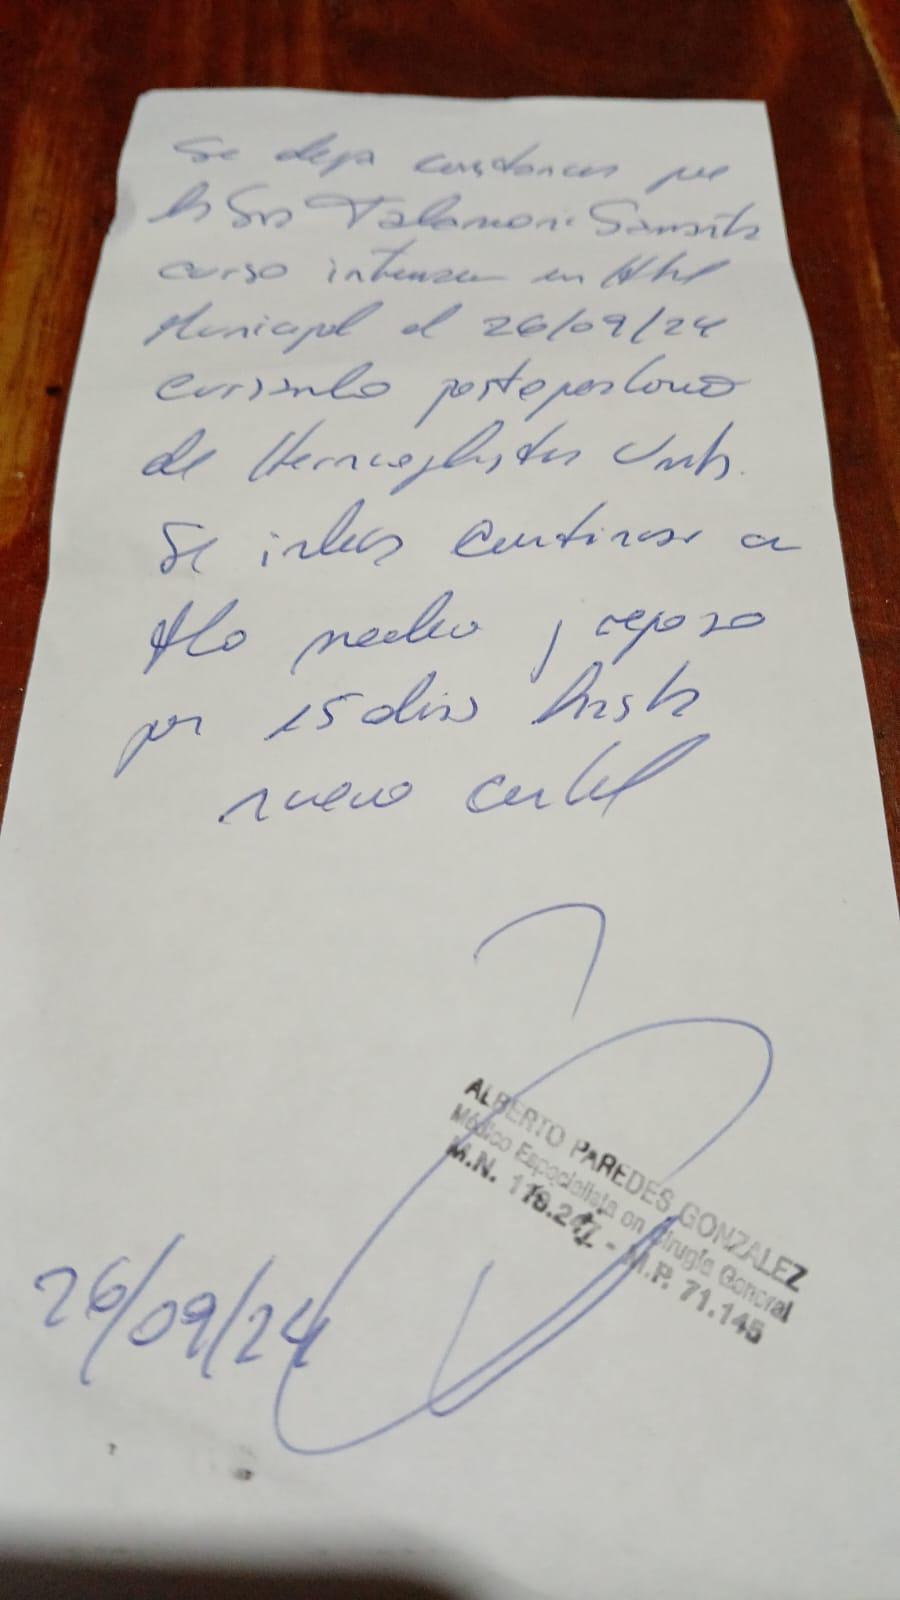 Se deja constancia que
la Sra Talamoni Samanta
curso internacion en Htal
Municipal el 26/09/24
cursando postoperatorio
de Hernioplastia Umb.
Se indica continuar a
Alta medica y reposo
por 15 dias hasta
nuevo control
ALBERTO PAREDES GONZALEZ
Médico Especialista en Cirugía General
M.N. 118.247 - M.P. 71.145
26/09/24